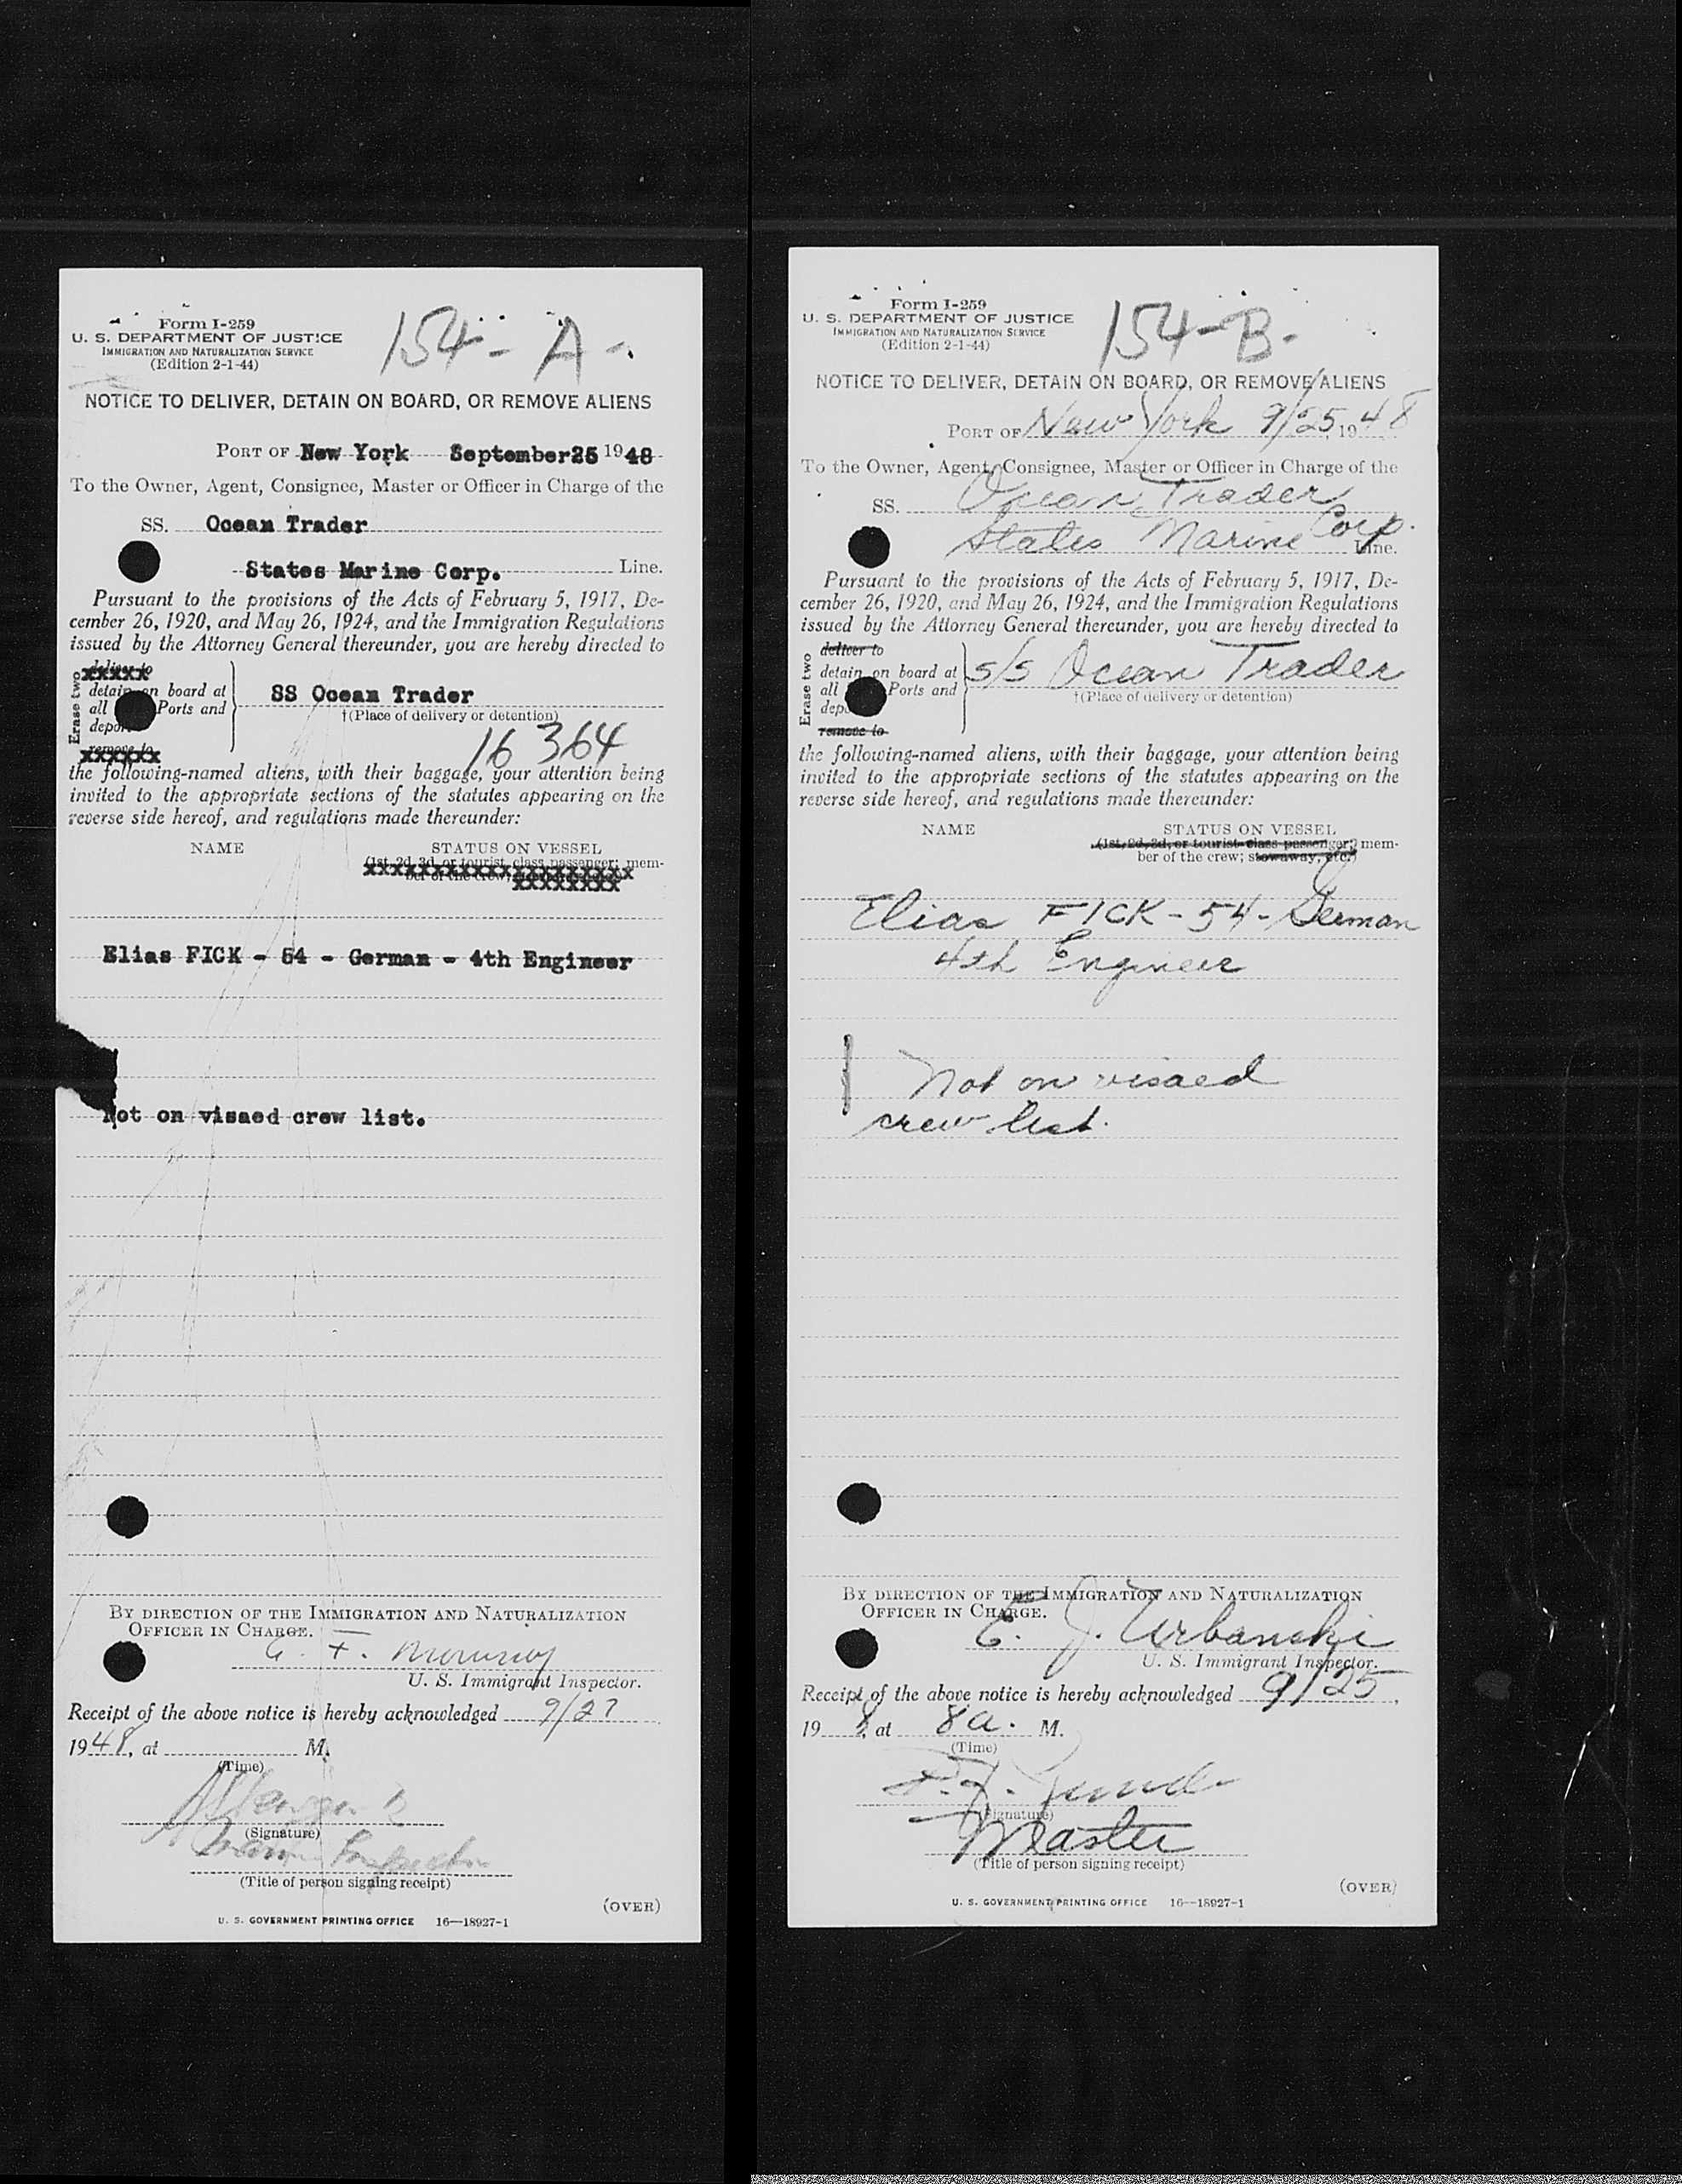 Form I-259
U. S. DEPARTMENT OF JUSTICE
IMMIGRATION AND NATURALIZATION SERVICE
(Edition 2-1-44)
154 - A -
NOTICE TO DELIVER, DETAIN ON BOARD, OR REMOVE ALIENS
PORT OF New York September 25 1948
To the Owner, Agent, Consignee, Master or Officer in Charge of the
SS. Ocean Trader
States Marine Corp. Line.
Pursuant to the provisions of the Acts of February 5, 1917, De-
cember 26, 1920, and May 26, 1924, and the Immigration Regulations
issued by the Attorney General thereunder, you are hereby directed to
Erase two
deliver to
detain on board at
all Ports and
depor
remove to
SS Ocean Trader
†(Place of delivery or detention)
16 364
the following-named aliens, with their baggage, your attention being
invited to the appropriate sections of the statutes appearing on the
reverse side hereof, and regulations made thereunder:
NAME STATUS ON VESSEL
(1st, 2d, 3d, or tourist class passenger; mem-
ber of the crew;
Elias FICK - 54 - German - 4th Engineer
Not on visaed crew list.
BY DIRECTION OF THE IMMIGRATION AND NATURALIZATION
OFFICER IN CHARGE.
F.
U. S. Immigrant Inspector.
Receipt of the above notice is hereby acknowledged 9/27
1948, at M.
(Time)
(Signature)
(Title of person signing receipt)
(OVER)
U. S. GOVERNMENT PRINTING OFFICE 16—18927-1
Form I-259
U. S. DEPARTMENT OF JUSTICE
IMMIGRATION AND NATURALIZATION SERVICE
(Edition 2-1-44)
154 - B -
NOTICE TO DELIVER, DETAIN ON BOARD, OR REMOVE ALIENS
PORT OF New York 9/25, 1948
To the Owner, Agent, Consignee, Master or Officer in Charge of the
SS. Ocean Trader
States Marine Corp. Line.
Pursuant to the provisions of the Acts of February 5, 1917, De-
cember 26, 1920, and May 26, 1924, and the Immigration Regulations
issued by the Attorney General thereunder, you are hereby directed to
Erase two
deliver to
detain on board at
all Ports and
depo
remove to
s/s Ocean Trader
†(Place of delivery or detention)
the following-named aliens, with their baggage, your attention being
invited to the appropriate sections of the statutes appearing on the
reverse side hereof, and regulations made thereunder:
NAME STATUS ON VESSEL
(1st, 2d, 3d, or tourist class passenger; mem-
ber of the crew; stowaway, etc.)
Elias FICK - 54 - German
4th Engineer
Not on visaed
crew list.
BY DIRECTION OF THE IMMIGRATION AND NATURALIZATION
OFFICER IN CHARGE.
E. J. Urbanski
U. S. Immigrant Inspector.
Receipt of the above notice is hereby acknowledged 9/25,
19 8, at 8 a. M.
(Time)
(Signature)
Master
(Title of person signing receipt)
(OVER)
U. S. GOVERNMENT PRINTING OFFICE 16—18927-1